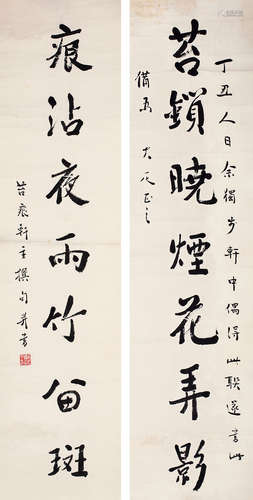 苔鎖曉煙花弄影
痕沾夜雨竹留斑
丁丑人日余獨步軒中偶得此聯遂書此
備忘
苔痕軒主撰句并書